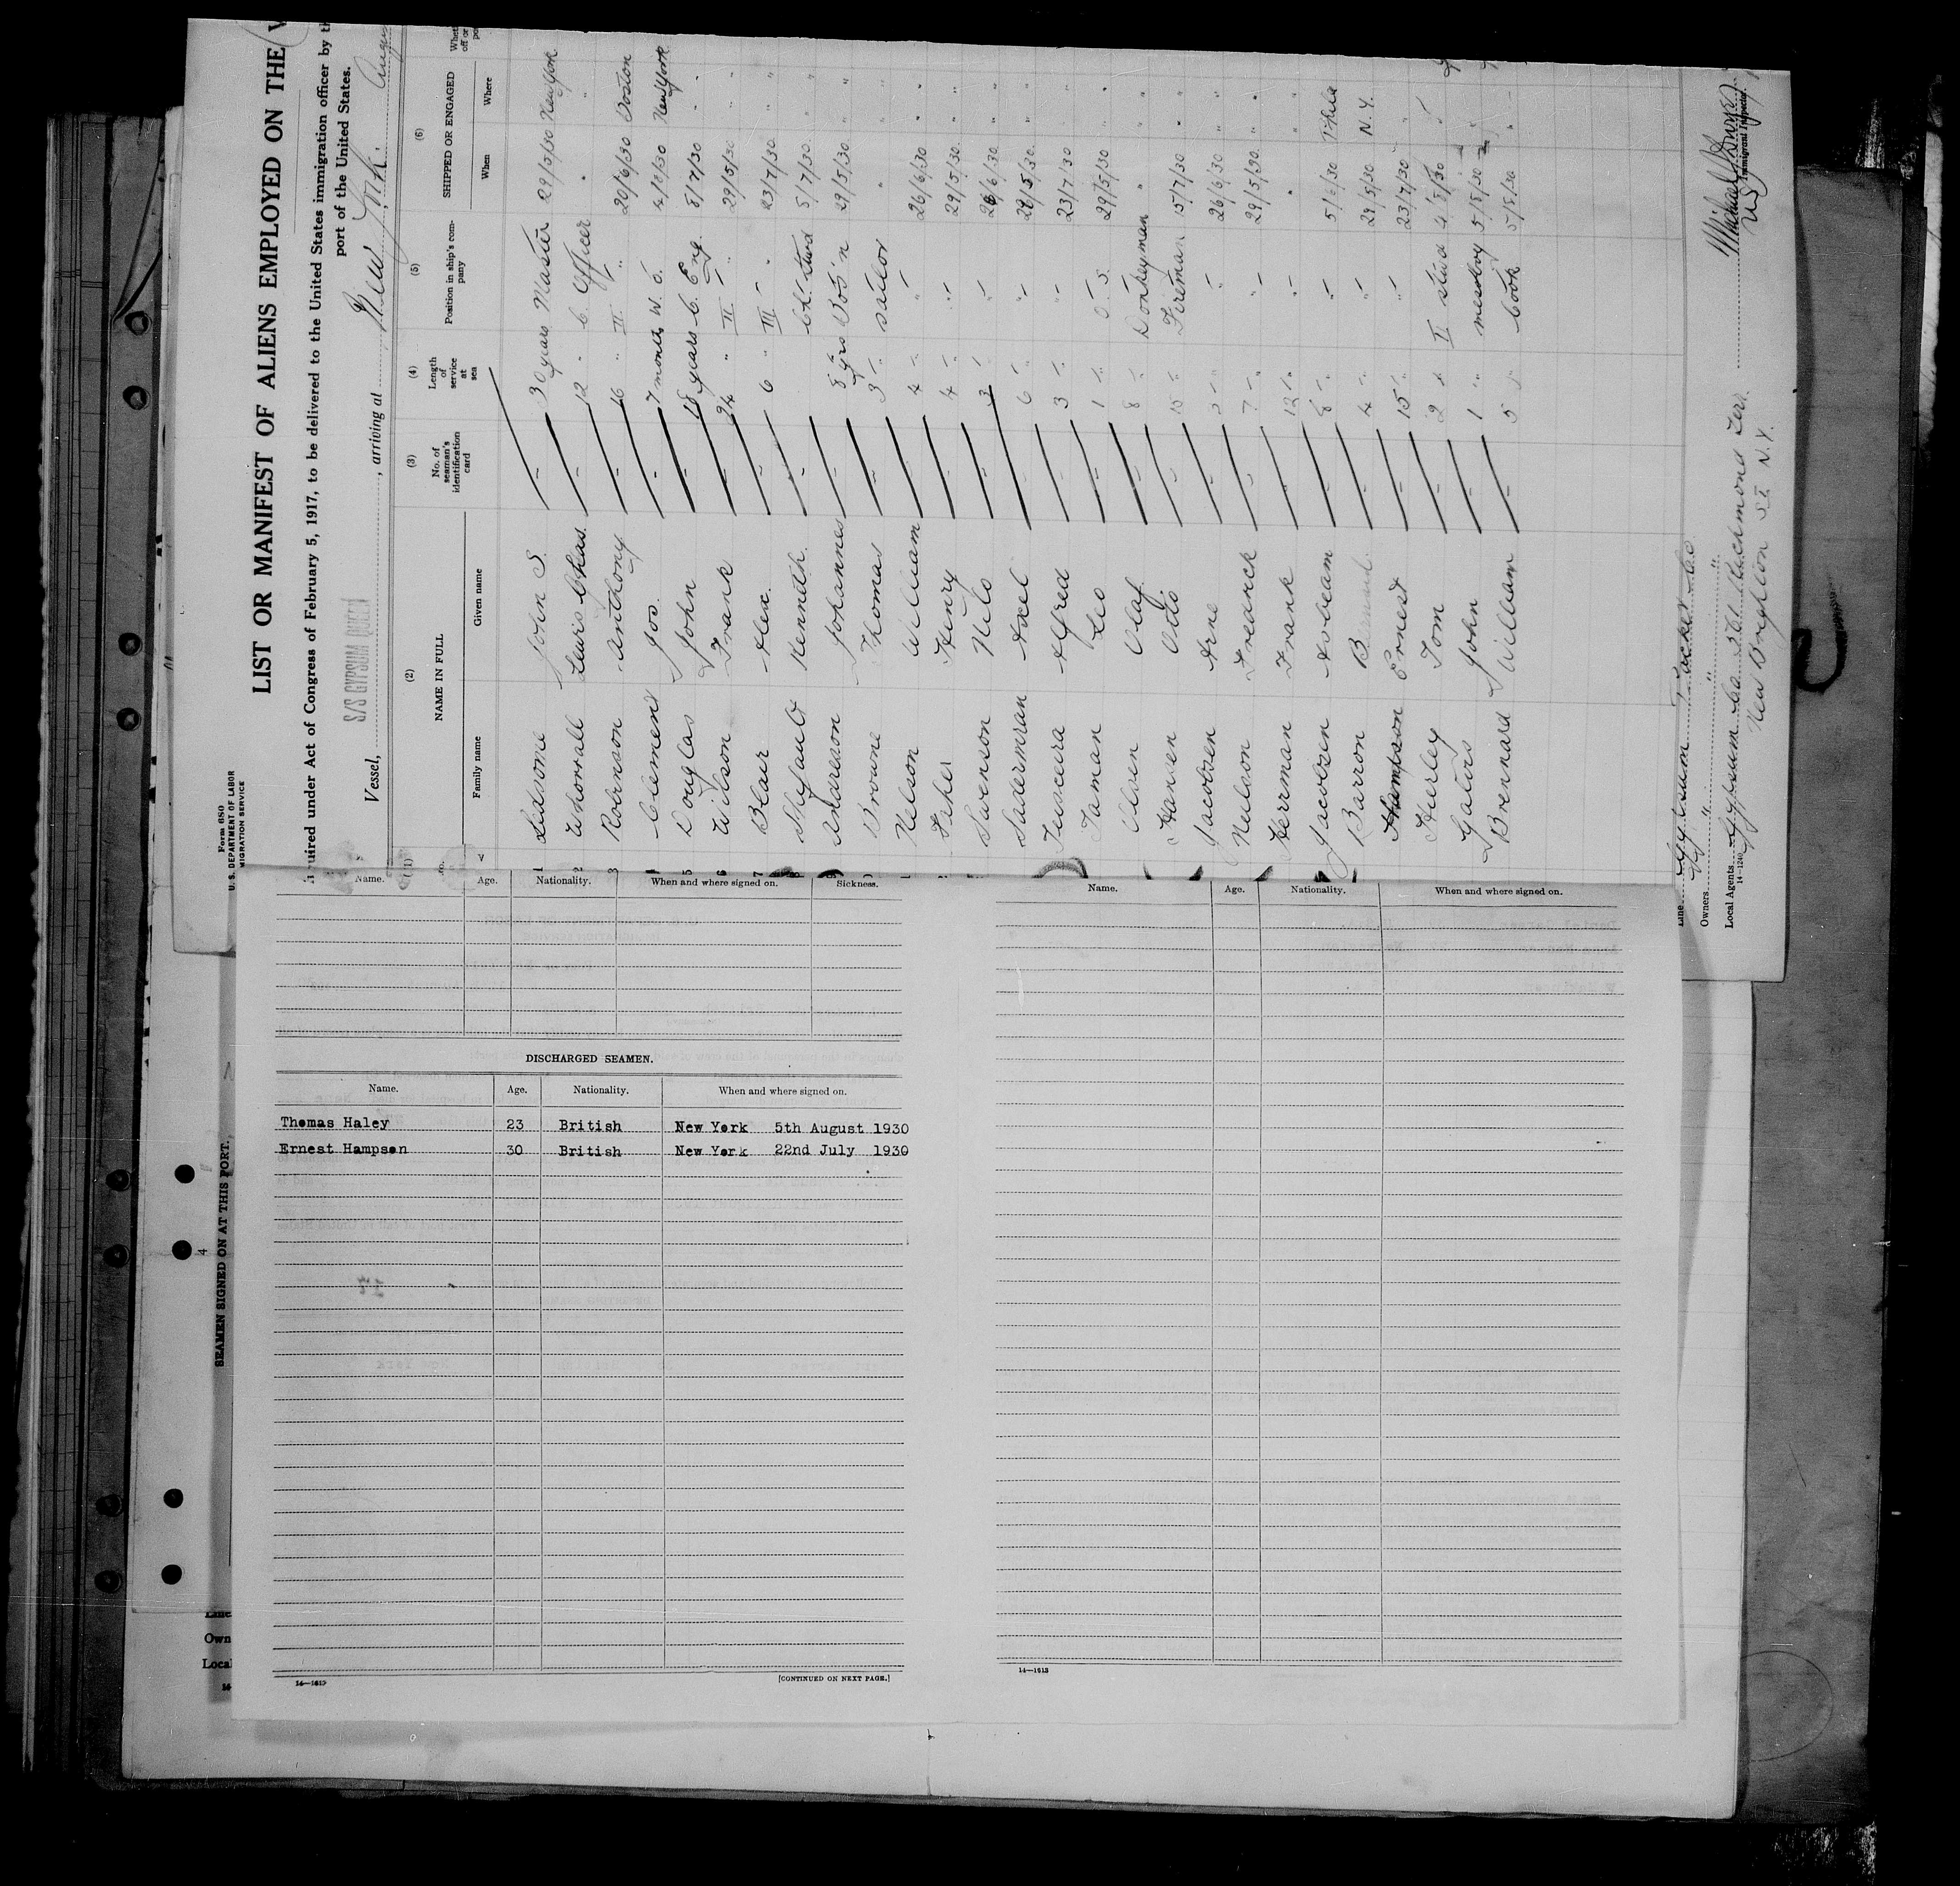 Form 680
U. S. DEPARTMENT OF LABOR
MIGRATION SERVICE
LIST OR MANIFEST OF ALIENS EMPLOYED ON THE
uired under Act of Congress of February 5, 1917, to be delivered to the United States immigration officer by th
port of the United States.
Vessel, S/S GYPSUM QUEEN, arriving at New York. Augus
(1) (2) (3) (4) (5) (6)
No. NAME IN FULL No. of seaman's identification card Length of service at sea Position in ship's company SHIPPED OR ENGAGED
Family name Given name When Where
1 Ledsome John S. 30 years Master 29/5/30 New York
2 Lewis Chas. 12 " C. Officer " "
3 Robinson Anthony 16 " II " 20/6/30 Boston
4 Clemens Jos. 7 months W. O. 4/8/30 New York
5 Douglas John 18 years C. Eng. 8/7/30 "
6 Wilson Frank 24 " II " 29/5/30 "
7 Blair Alex. 6 " III " 23/7/30 "
8 Kenneth Ch. Stwd 5/7/30 "
9 Anderson Johannes 8 yrs Bos'n 29/5/30 "
Browne Thomas 3 " Sailor " "
Nelson William 4 " " 26/6/30 "
Fisher Henry 4 " " 29/5/30 "
Swenson Nils 3 " " 26/6/30 "
Axel 6 " " 29/5/30 "
Alfred 3 " " 23/7/30 "
Geo 1 " O. S. 29/5/30 "
Olsen Olaf 8 " Donkeyman " "
Hansen Otto 15 " Fireman 15/7/30 "
Jacobsen Arne 3 " " 26/6/30 "
Neilson Fredrick 7 " " 29/5/30 "
Herrman Frank 12 " " " "
Jacobsen 8 " " 5/6/30 Phila
Barron Bernard 4 " " 29/5/30 N. Y.
Hampson Ernest 15 " " 23/7/30 "
Hurley Tom 2 " II Stwd 4/8/30 "
John 1 " messboy 5/8/30 "
Brennard William 5 " Cook 5/8/30 "
Line Gypsum Packet Co
Owners " " "
Local Agents Gypsum Co. 561 Richmond Terr
New Brighton S.I. N.Y.
14—1240
Immigrant Inspector.
Name. Age. Nationality. When and where signed on. Sickness.
DISCHARGED SEAMEN.
Name. Age. Nationality. When and where signed on.
Thomas Haley 23 British New York 5th August 1930
Ernest Hampson 30 British New York 22nd July 1930
14—1613 [CONTINUED ON NEXT PAGE.]
Name. Age. Nationality. When and where signed on.
14—1613
SEAMEN SIGNED ON AT THIS PORT.
4
Line
Own
Local
14